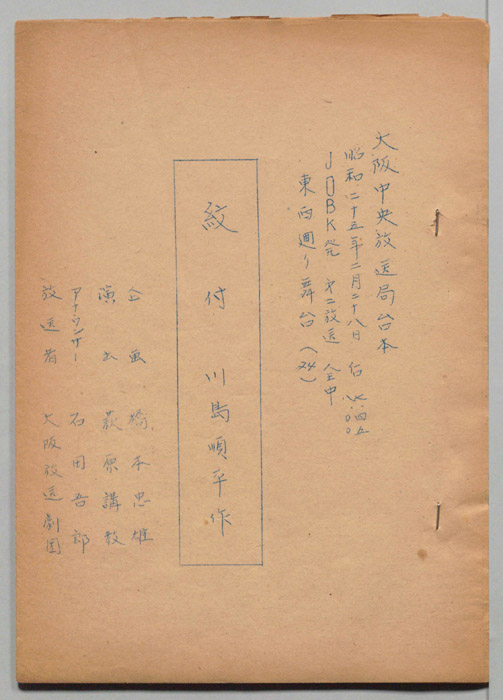 大阪中央放送局台本
昭和二十五年二月二十八日
JOBK発 第二放送 全中
東西廻り舞台(24)
紋付 川島順平作
企画 橋本忠雄
演出 萩原講教
アナウンサー 石田吾郎
放送者 大阪放送劇団